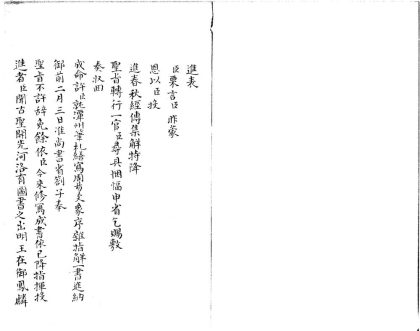 進表
臣栗言臣昨蒙
恩以臣投
進春秋經傳集解特降
聖旨轉行一官臣尋具悃愊申省乞賜敷
奏収回
成命許臣就潭州筆札繕寫周易爻象序雜指解一書進納
御前二月三日准尚書省劄子奉
聖旨不許辭免餘依臣今来修寫成書依已降指揮投
進者臣聞古聖開先河洛有圖書之出明王在御鳳麟